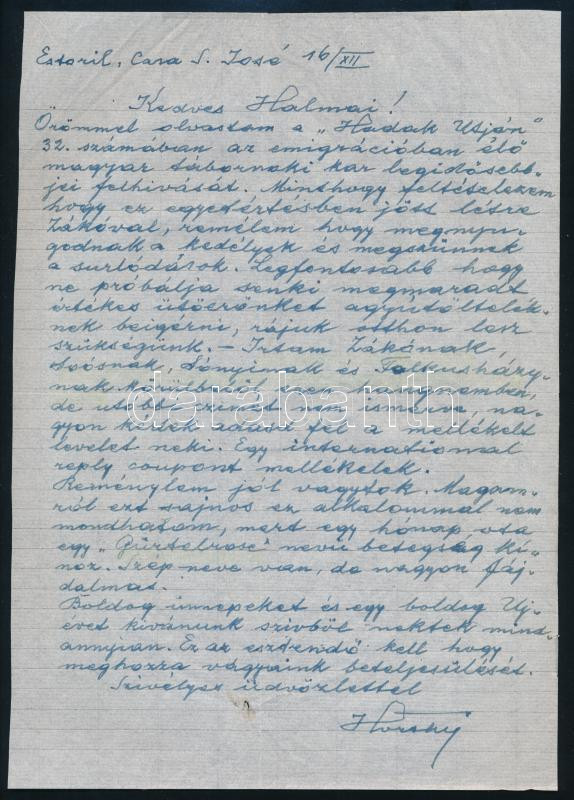 Estoril, Casa S. José 16/XII
Kedves Halmai!
Örömmel olvastam a „Hadak Utján"
32. számában az emigrációban élő
magyar tábornoki kar legidősebb-
jei felhivását. Minthogy feltételezem
hogy ez egyetértésben jött létre
Zákóval, remélem hogy megnyu-
godnak a kedélyek és megszünnek
a surlódások. Legfontosabb hogy
ne próbálja senki megmaradt
értékes ütőerőnket ágyútöltelék-
nek beigérni, rájuk otthon lesz
szükségünk. – Irtam Zákónak,
Soósnak, Sónyinak és Falkusházy-
nak körülbelül ezen
de utóbbi cimét nem ismerve, na-
gyon kérlek add fel a mellékelt
levelet neki. Egy international
reply coupont mellékelek.
Reménylem jól vagytok. Magam-
ról ezt sajnos ez alkalommal nem
mondhatom, mert egy hónap óta
egy „Gürtelrose" nevü betegség ki-
noz. Szép neve van, de nagyon fáj-
dalmas.
Boldog ünnepeket és egy boldog Uj-
évet kivánunk szivből nektek mind-
annyian. Ez az esztendő kell hogy
meghozza vágyaink beteljesülését.
Szivélyes üdvözlettel
Horthy
darabanth